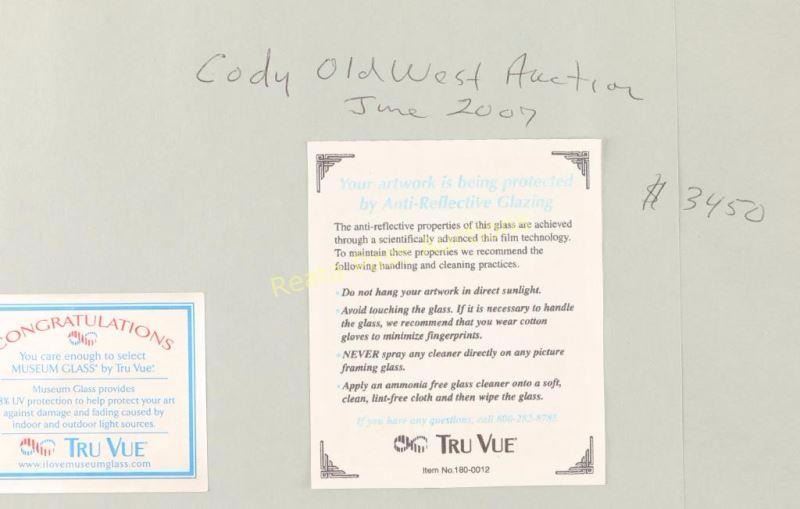 Cody Old West Auction
June 2007
$ 3450
Your artwork is being protected
by Anti-Reflective Glazing
The anti-reflective properties of this glass are achieved
through a scientifically advanced thin film technology.
To maintain these properties we recommend the
following handling and cleaning practices.
• Do not hang your artwork in direct sunlight.
• Avoid touching the glass. If it is necessary to handle
the glass, we recommend that you wear cotton
gloves to minimize fingerprints.
• NEVER spray any cleaner directly on any picture
framing glass.
• Apply an ammonia free glass cleaner onto a soft,
clean, lint-free cloth and then wipe the glass.
If you have any questions, call 800-282-8788.
TRU VUE®
Item No.180-0012
CONGRATULATIONS
You care enough to select
MUSEUM GLASS® by Tru Vue®.
Museum Glass provides
8% UV protection to help protect your art
against damage and fading caused by
indoor and outdoor light sources.
TRU VUE®
www.ilovemuseumglass.com